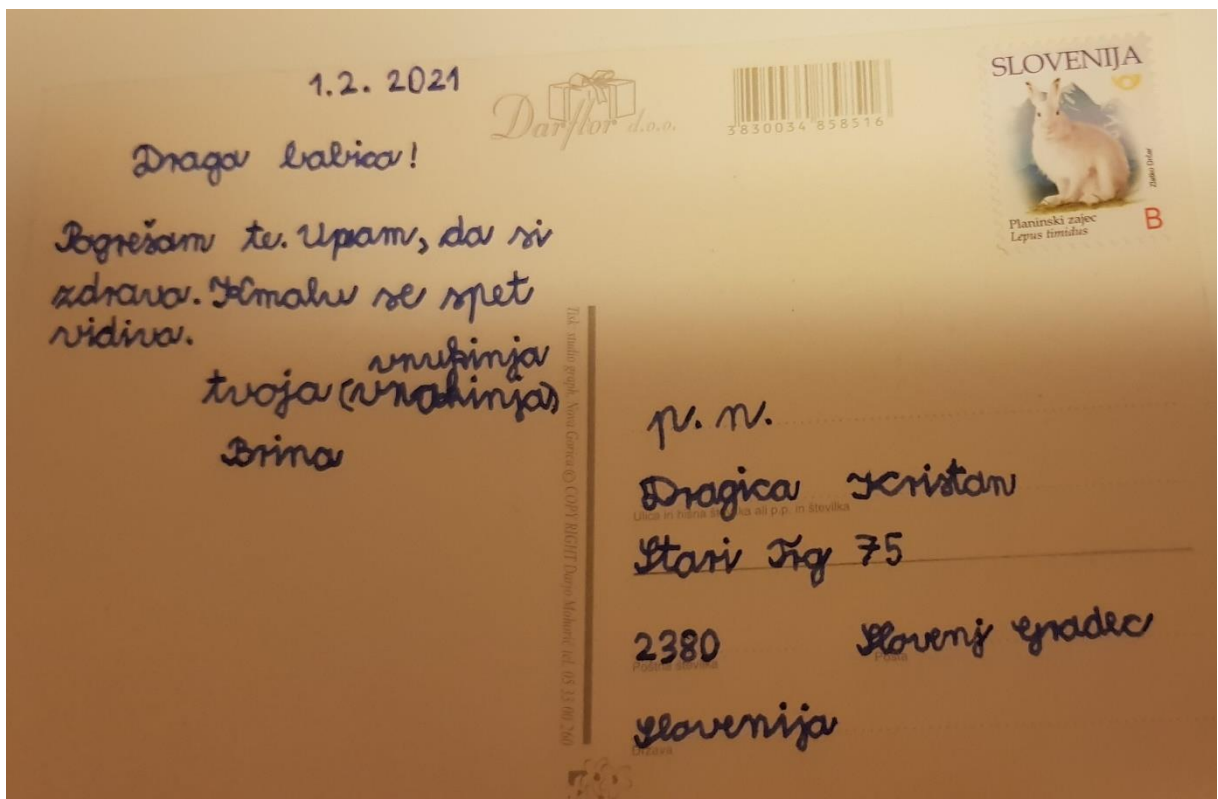 1.2. 2021
Draga babica!
Pogrešam te. Upam, da si
zdrava. Kmalu se spet
vidiva.
vnukinja
tvoja (vnakinja)
Brina
Darflor d.o.o.
3830034 858516
SLOVENIJA
Zlatko Drčar
Planinski zajec
Lepus timidus
B
Tisk: studio graph, Nova Gorica © COPY RIGHT Darjo Mohorič tel. 05 33 00 260
p. n.
Dragica Kristan
Ulica in hišna številka ali p.p. in številka
Stari Trg 75
2380 Slovenj Gradec
Poštna številka Pošta
Slovenija
Država